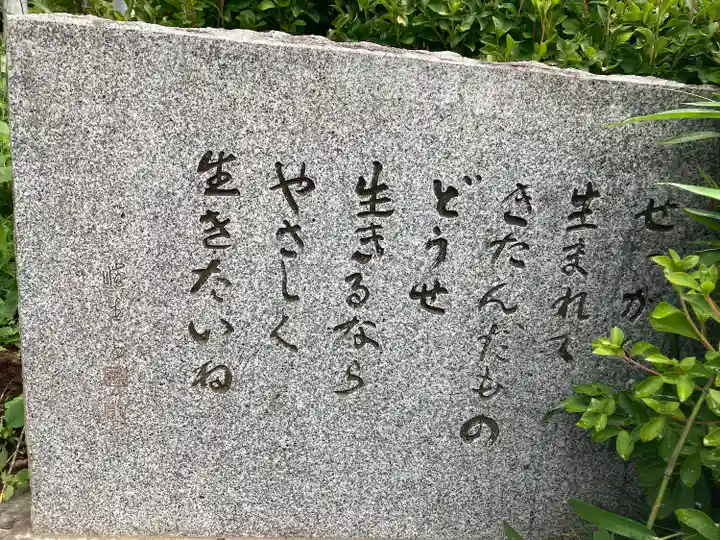 せっか
生まれて
きたんだもの
どうせ
生きるなら
やさしく
生きたいね